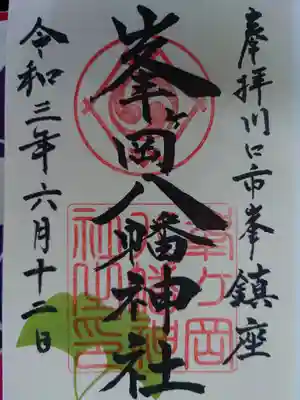 奉拝川口市峯鎮座
峯ヶ岡八幡神社
峯ヶ岡八幡神社之印
令和三年六月十二日